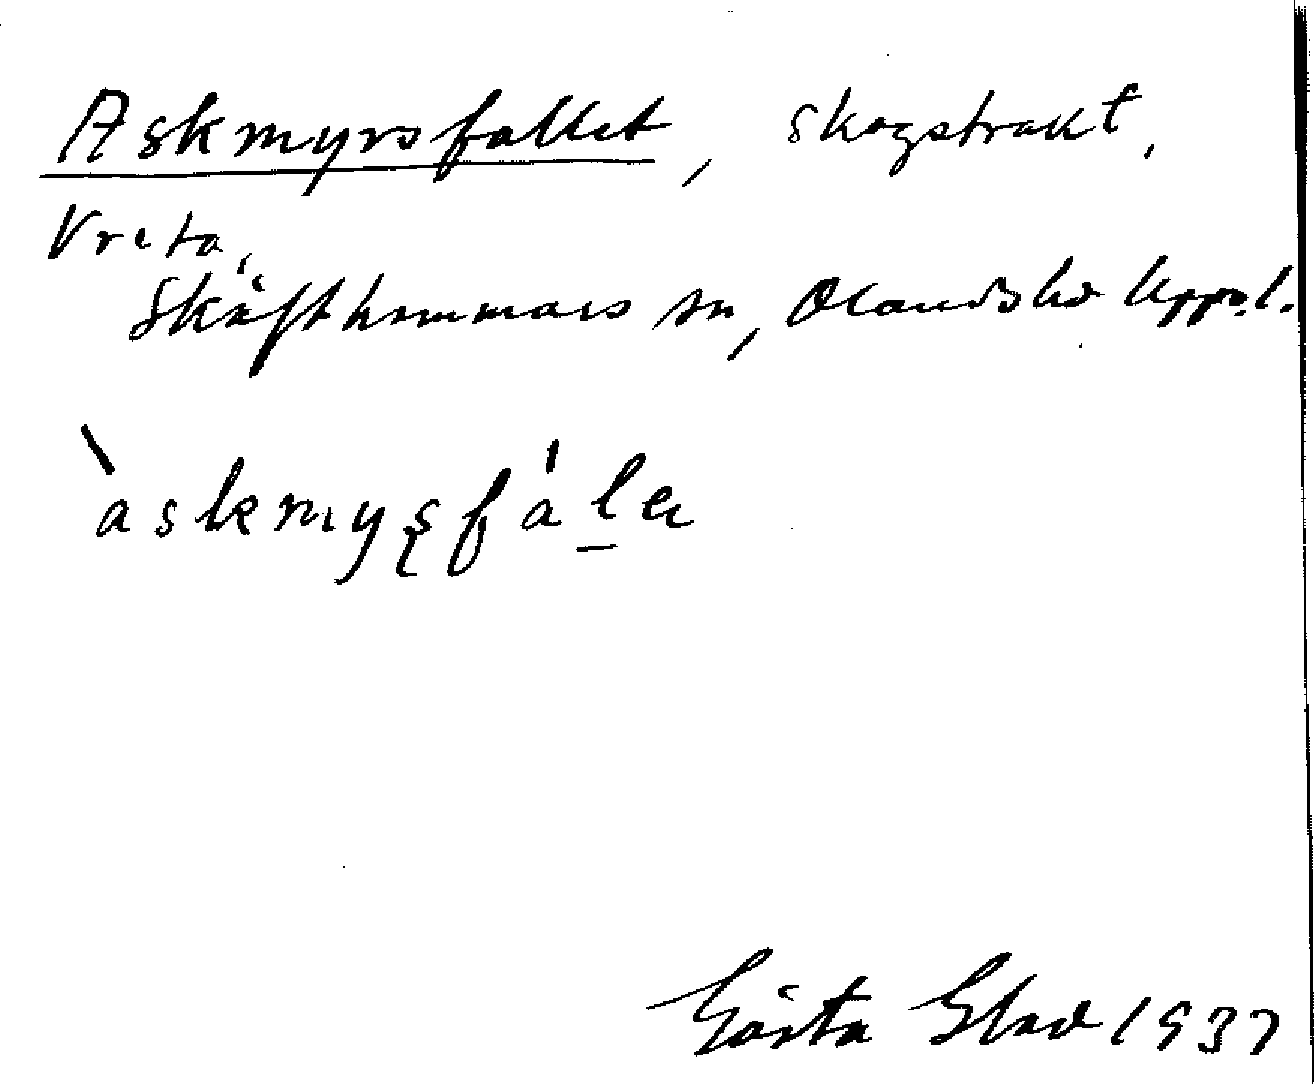 Askmyrsfallet, skogstrakt,
Vreta,
Skäfthammars sn, Olands hd Uppl.
àskmyʂfáḷeṇ
Gösta Blad 1937